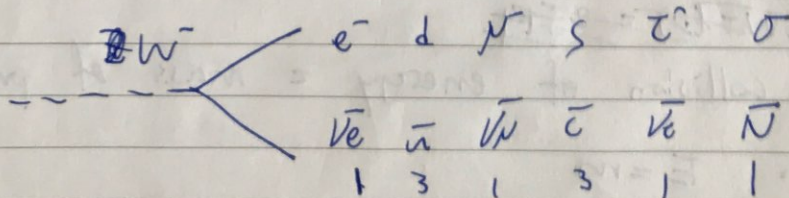 W⁻ e⁻ d μ⁻ s τ⁻ σ
ν̄e ū ν̄μ c̄ ν̄τ N̄
1 3 1 3 1 1